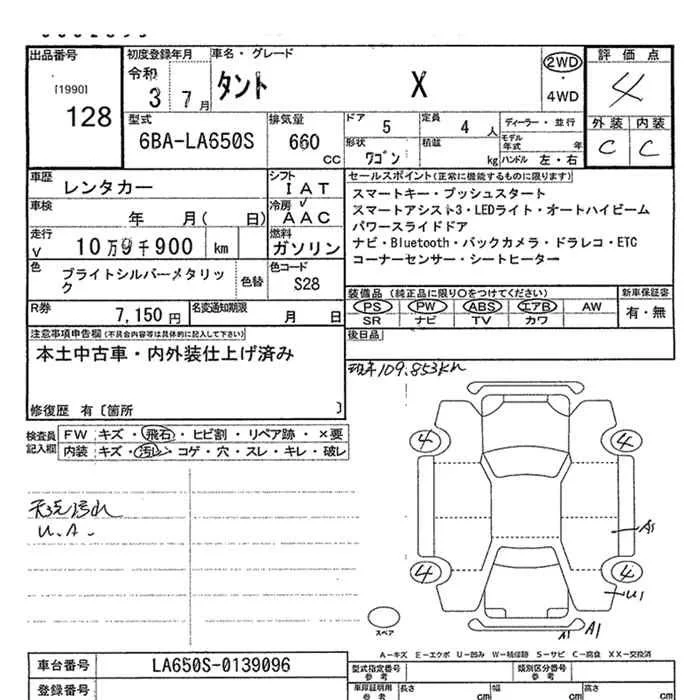 出品番号
[1990]
128
初度登録年月
令和
3 7月
車名・グレード
タント X
2WD
・
4WD
評価点
4
外装 内装
C C
型式
6BA-LA650S
排気量
660
CC
ドア
5
定員
4人
形状
ワゴン
積載
kg
ディーラー・並行
モデル年式 年
ハンドル 左・右
車歴
レンタカー
シフト
IAT
車検
年 月( 日)
冷房
AAC
走行
V 10万9千900 km
燃料
ガソリン
色
ブライトシルバーメタリック
色替
色コード
S28
R券
7,150円
名変通知期限
月 日
セールスポイント(正常に機能するものに限ります)
スマートキー・プッシュスタート
スマートアシスト3・LEDライト・オートハイビーム
パワースライドドア
ナビ・Bluetooth・バックカメラ・ドラレコ・ETC
コーナーセンサー・シートヒーター
装備品(純正品に限り○をつけてください)
PS PW ABS エアB AW
SR ナビ TV カワ
新車保証書
有・無
後日品
注意事項申告欄(不具合内容等は具体的に記入して下さい)
本土中古車・内外装仕上げ済み
修復歴 有〔箇所 〕
現車109.853km
検査員
記入欄
FW キズ・飛石・ヒビ割・リペア跡・×要
内装 キズ・汚レ・コゲ・穴・スレ・キレ・破レ
天完汚れ
U.A.
4 4
A5
4 4
U1
スペア
A1 A1
A-キズ E-エクボ U-凹み W-補修跡 S-サビ C-腐食 XX-交換済
車台番号
LA650S-0139096
登録番号
型式指定番号
参考
類別区分番号
参考
車庫証明用
参考
長さ cm
幅 cm
高さ cm